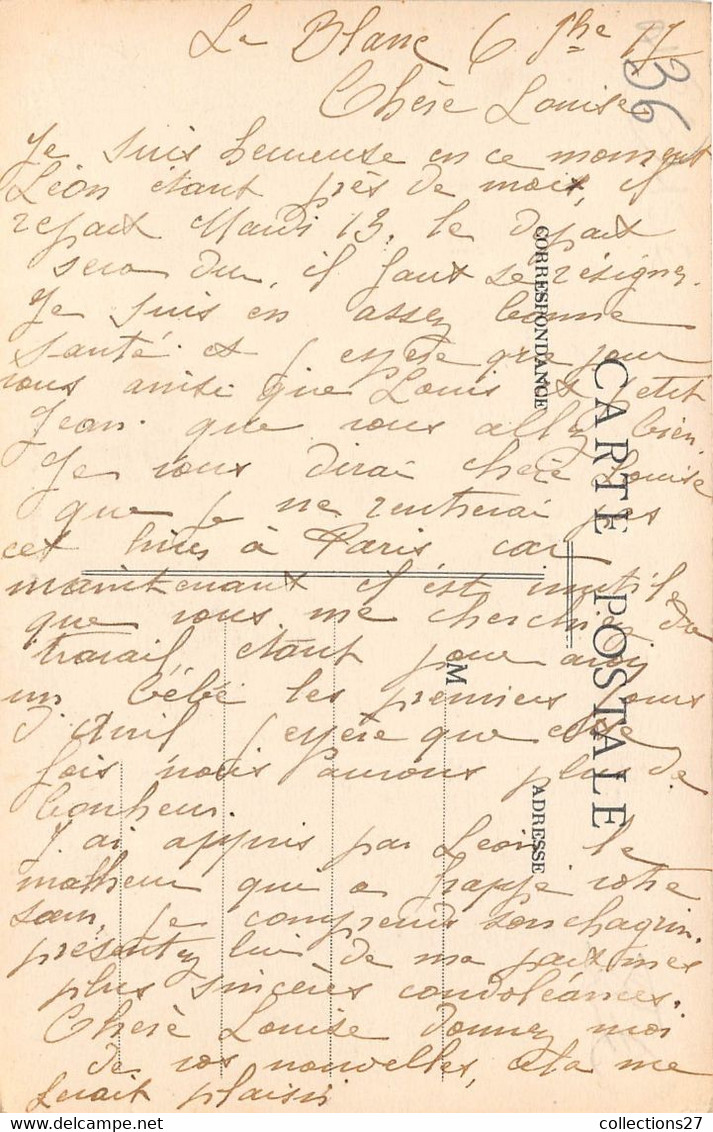 Le Blanc 6 9bre 17
36
Chère Louise,
Je suis heureuse en ce moment
Léon étant près de moi, il
repart Mardi 13. le départ
sera dur, il faut se résigner.
Je suis en assez bonne
santé et j'espère que pour
vous ainsi que Louis et petit
Jean. que vous allez bien.
Je vous dirai chère Louise
que je ne rentrerai pas
cet hiver à Paris car
maintenant c'est inutile
que vous me cherchiez du
travail, étant pour avoir
un bébé les premiers jours
d'Avril j'espère que cette
fois nous l'aurons plus de
bonheur.
J'ai appris par Léon le
malheur qui a frappé votre
sœur, je comprends son chagrin.
présentez lui de ma part mes
plus sincères condoléances.
Chère Louise donnez moi
de vos nouvelles, cela me
ferait plaisir
CARTE POSTALE
CORRESPONDANCE
M
ADRESSE
collections27